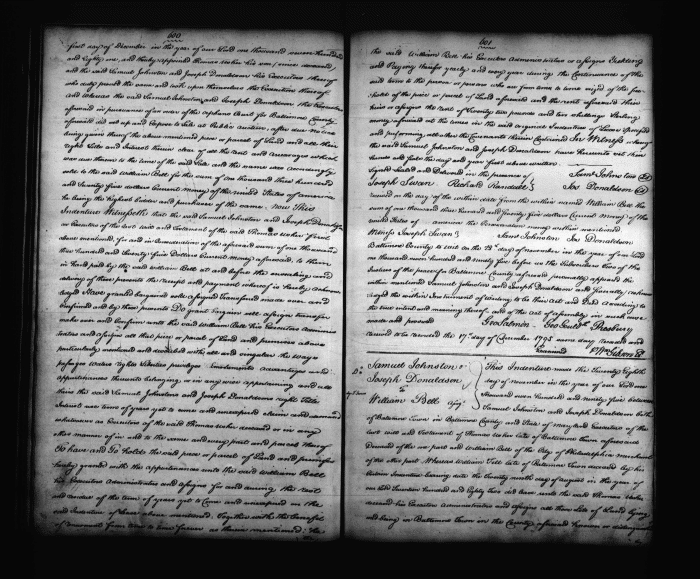 600
first day of December in the year of our Lord one thousand seven hundred
and eighty one, and thereby appointed Thomas Usher his son since deceased
and the said Samuel Johnston and Joseph Donaldson his Executors thereof
who duly proved the same and took upon themselves the Execution thereof
and whereas the said Samuel Johnston and Joseph Donaldson the Executors
aforesaid in pursuance of an order of the orphans Court for Baltimore County
aforesaid did set up and expose to Sale at Public auction, after due notice
being given thereof the above mentioned piece or parcel of Land and all their
right Title and Interest therein clear of all the rent and arrearages which
were due thereon to the time of the said Sale and the same was accordingly
sold to the said William Bell for the sum of one thousand three hundred
and Twenty five dollars Current money of the united States of america
he being the highest bidder and purchaser of the same. Now This
Indenture Witnesseth that the said Samuel Johnston and Joseph Donaldson
as Executors of the last will and Testament of the said Thomas Usher first
above mentioned, for and in Consideration of the aforesaid sum of one thousand
three hundred and Twenty five Dollars Current money aforesaid, to them
in hand paid by the said William Bell at and before the ensealing and
delivery of these presents the receipt and payment whereof is hereby acknow
ledged Have granted bargained sold assigned Transfered made over and
Confirmed and by these presents Do grant bargain sell assign transfer
make over and Confirm unto the said William Bell his Executors adminis
trators and assigns all that piece or parcel of Land and premises above
particularly mentioned and described with all and singular the ways
passages waters rights liberties privileges Emoluments advantages and
appurtenances thereunto belonging or in any wise appertaining and all
them the said Samuel Johnston and Joseph Donaldsons right Title
Interest use term of years yet to come and unexpired claim and demand
whatsoever as Executors of the said Thomas Usher deceased or in any
other manner of in and to the same and every part and parcel thereof
To have and To hold the said piece or parcel of Land and premises
hereby granted with the appurtenances unto the said William Bell
his Executors Administrators and assigns for and during the rest
and residue of the Term of years yet to Come and unexpired in the
said Indenture of Lease above mentioned. Together with the benefit
of renewals from time to time forever as therein mentioned. He
601
the said William Bell his Executors administrators or assigns Yielding
and Paying therefor yearly and every year during the Continuance of the
said term to the person or persons who are from time to time seized of the free
hold of the piece or parcel of Land aforesaid and the rent aforesaid their
heirs or assigns the rent of Twenty two pounds and two shillings Sterling
money aforesaid at the times in the said original Indenture of Lease specified
and performing all other the Covenants therein Contained In Witness whereof
the said Samuel Johnston and Joseph Donaldson have hereunto set their
hands and seals the day and year first above written
Signed Sealed and Delivered in the presence of Saml Johnston
Joseph Swan Richard Ramsdell Jos Donaldson
received on the day of the within date from the within named William Bell the
sum of one thousand three hundred and Twenty five dollars Current money of the
united States of america the Consideration money within mentioned
Witness Joseph Swan Saml Johnston Jos Donaldson
Baltimore County to wit on the 28th day of november in the year of our Lord
one thousand seven hundred and ninety five before us the Subscribers two of the
Justices of the peace for Baltimore County aforesaid personally appeared the
within mentioned Samuel Johnston and Joseph Donaldson and severally acknow
ledged the within Instrument of writing to be their act and Deed according to
the true intent and meaning thereof and of the act of assembly in such case
made and provided Geo Salmon Geo Gouldsh Presbury
received to be recorded the 17th day of December 1795 same day recorded and
Examined pr Wm Gibson Clk
Samuel Johnston &
Joseph Donaldson
to
William Bell Assgt
This Indenture made the Twenty Eighth
day of november in the year of our Lord one
thousand seven hundred and ninety five between
Samuel Johnston and Joseph Donaldson both
of Baltimore Town in Baltimore County and State of maryland Executors of the
last will and Testament of Thomas Usher late of Baltimore Town aforesaid
Deceased of the one part and William Bell of the City of Philadelphia merchant
of the other part Whereas William Fell late of Baltimore Town deceased by his
certain Indenture bearing date the Twenty ninth day of august in the year of
our Lord Seventeen hundred and Eighty two did lease unto the said Thomas Usher
deceased his Executors administrators and assigns all those Lots of Land lying
and being in Baltimore Town in the County aforesaid known